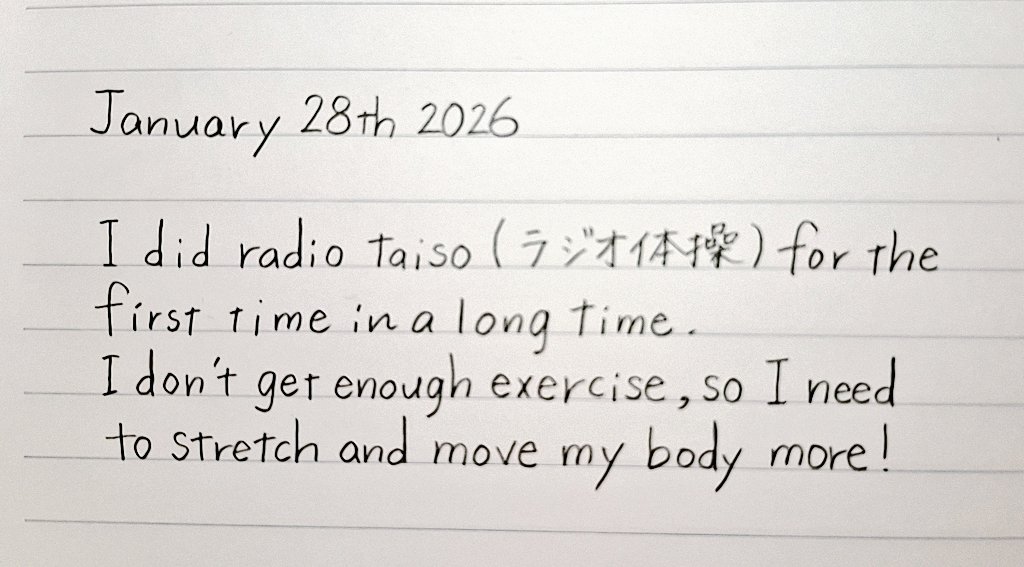 January 28th 2026
I did radio taiso (ラジオ体操) for the
first time in a long time.
I don't get enough exercise, so I need
to stretch and move my body more!